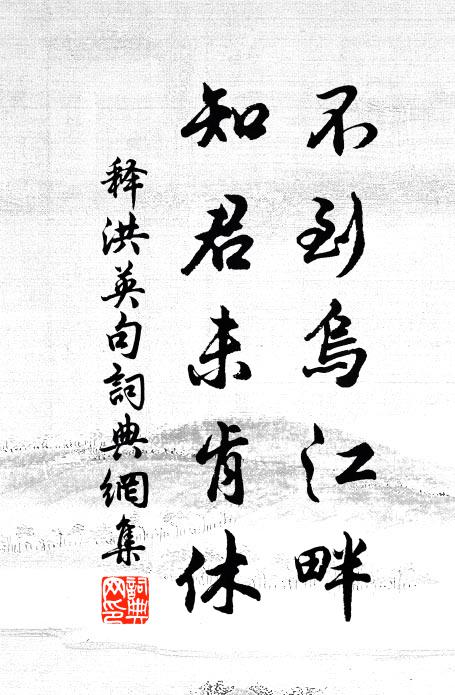 不到烏江畔
知君未肯休
释洪英句詞典網集
詞典
网印